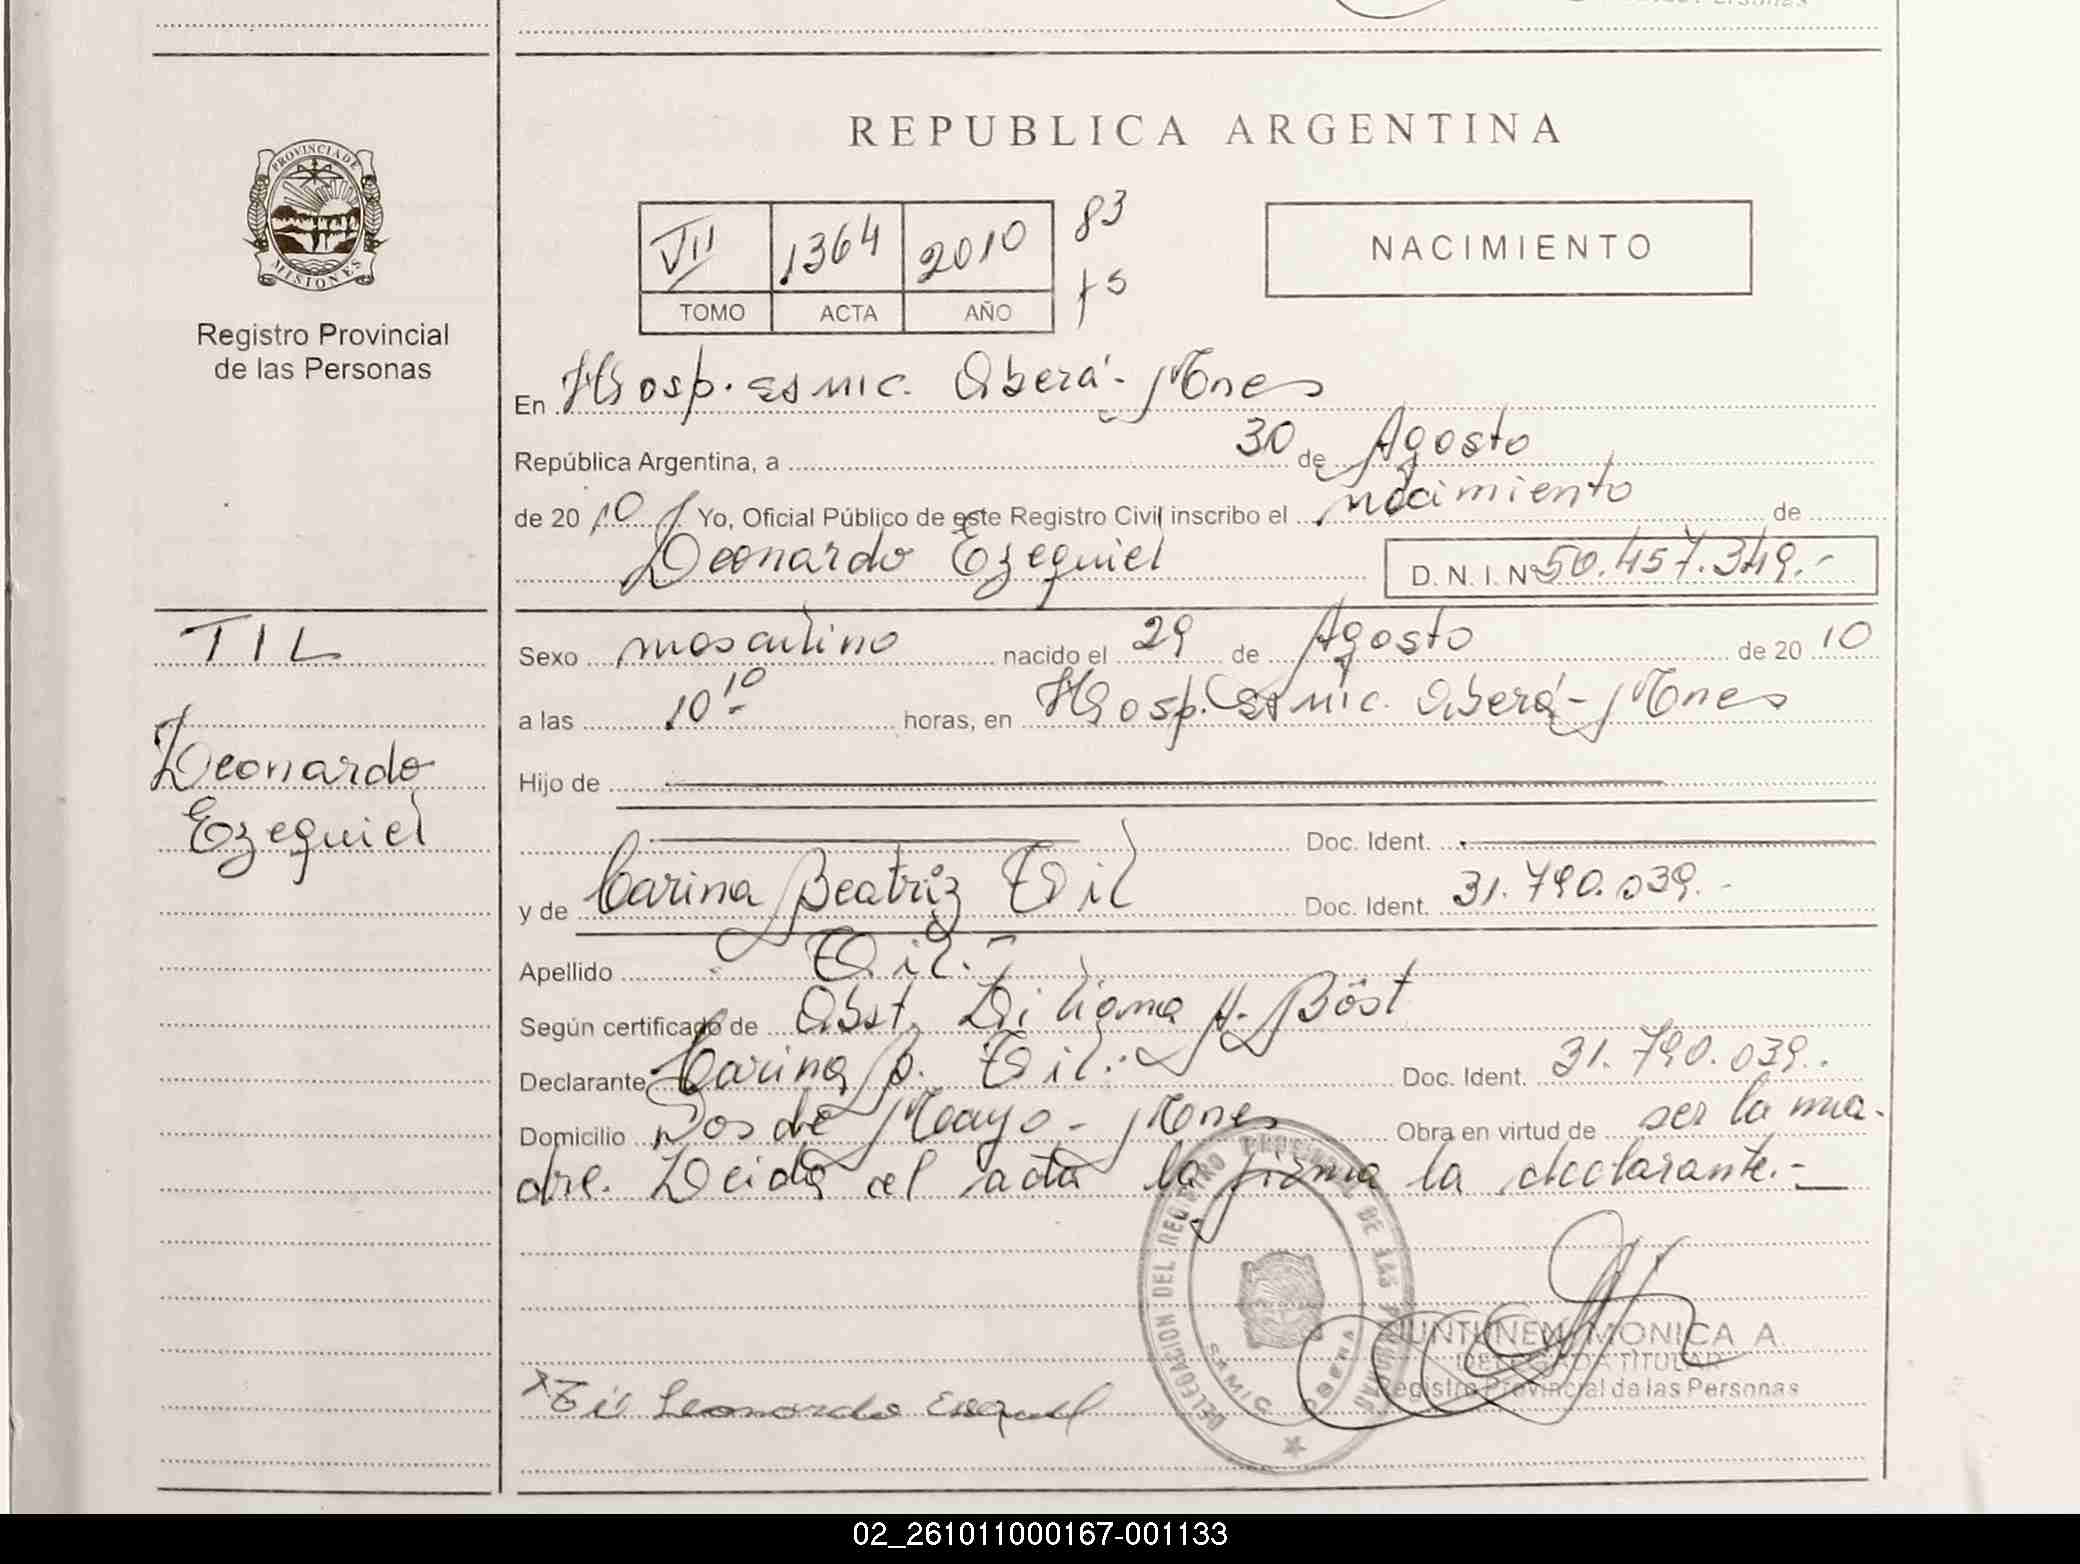 REPUBLICA ARGENTINA
PROVINCIA DE
MISIONES
Registro Provincial
de las Personas
VII 1364 2010 83
TOMO ACTA AÑO
NACIMIENTO
En Hosp. Samic. Oberá - Mnes
República Argentina, a 30 de Agosto
de 2010 Yo, Oficial Público de este Registro Civil inscribo el nacimiento de
Leonardo Ezequiel D.N.I. Nº 50.457.349.-
TIL
Leonardo
Ezequiel
Sexo masculino nacido el 29 de Agosto de 2010
a las 10 10 horas, en Hosp. Samic. Oberá - Mnes
Hijo de
Doc. Ident.
y de Carina Beatriz Til Doc. Ident. 31.790.039.-
Apellido Til.-
Según certificado de Obst. Liliana A. Böst
Declarante Carina B. Til.- Doc. Ident. 31.790.039.-
Domicilio Dos de Mayo - Mnes Obra en virtud de ser la ma-
dre. Leida el acta la firma la declarante.-
DELEGACION DEL REGISTRO PROVINCIAL DE LAS PERSONAS
SAMIC OBERA
MONICA A.
DELEGADA TITULAR
Registro Provincial de las Personas
x Til Leonardo Esequiel
02_261011000167-001133